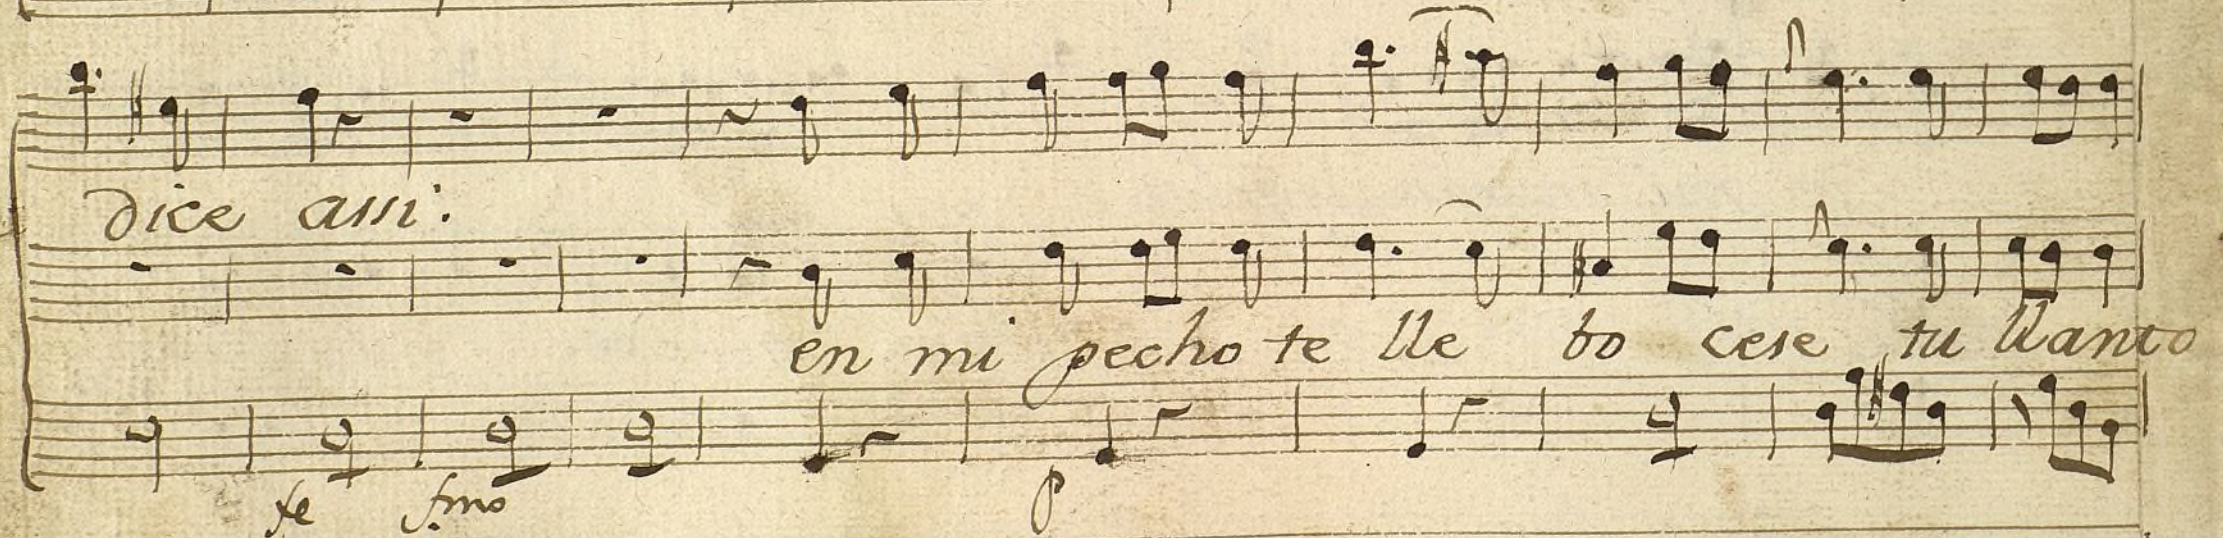 dice assi.
en mi pecho te lle bo cese tu llanto
fe fmo p